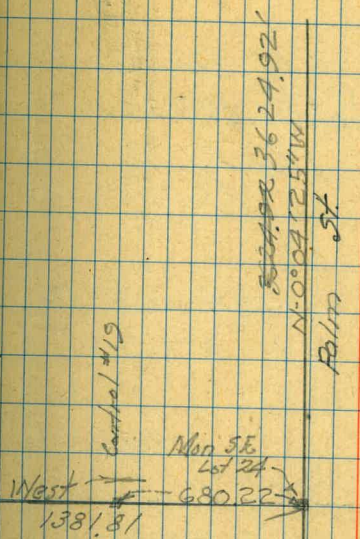 3624.92'
N-0°04'25"W
Palm St.
Control #19
Mon SE
Lot 24
West
680.22
1381.81